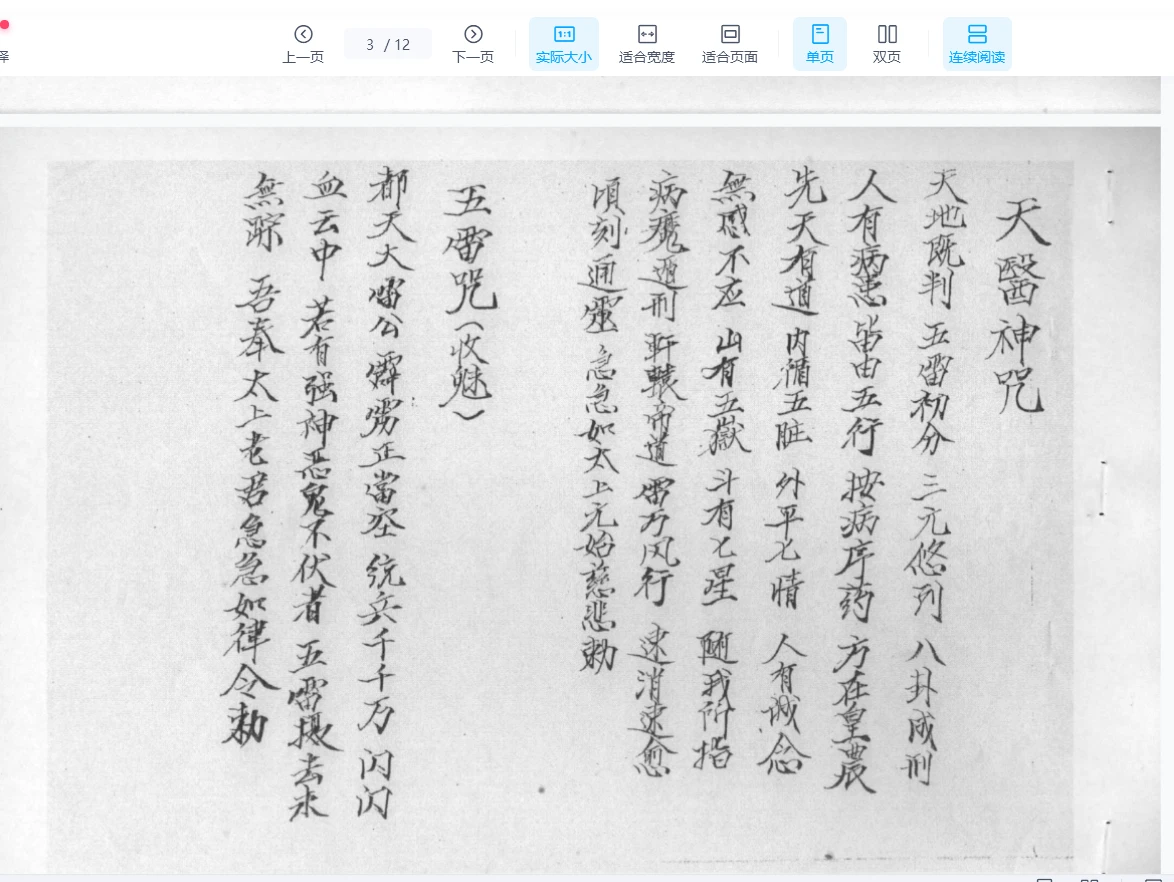 译
上一页
3 / 12
下一页
1:1
实际大小
适合宽度
适合页面
单页
双页
连续阅读
天醫神咒
天地既判 五雷初分 三元悠列 八卦成刑
人有病患 皆由五行 按病序药 方在皇農
先天有道 内循五脏 外平七情 人有诚念
無感不应 山有五嶽 斗有七星 随我所指
病魔遁刑 軒轅帝道 雷万风行 速消速愈
頃刻通靈 急急如太上元始慈悲勅
五雷咒（收魅）
都天大雷公 霹雳正當空 统兵千千万 闪闪
血云中 若有强神恶鬼不伏者 五雷摄去未
無踪 吾奉太上老君急急如律令勅